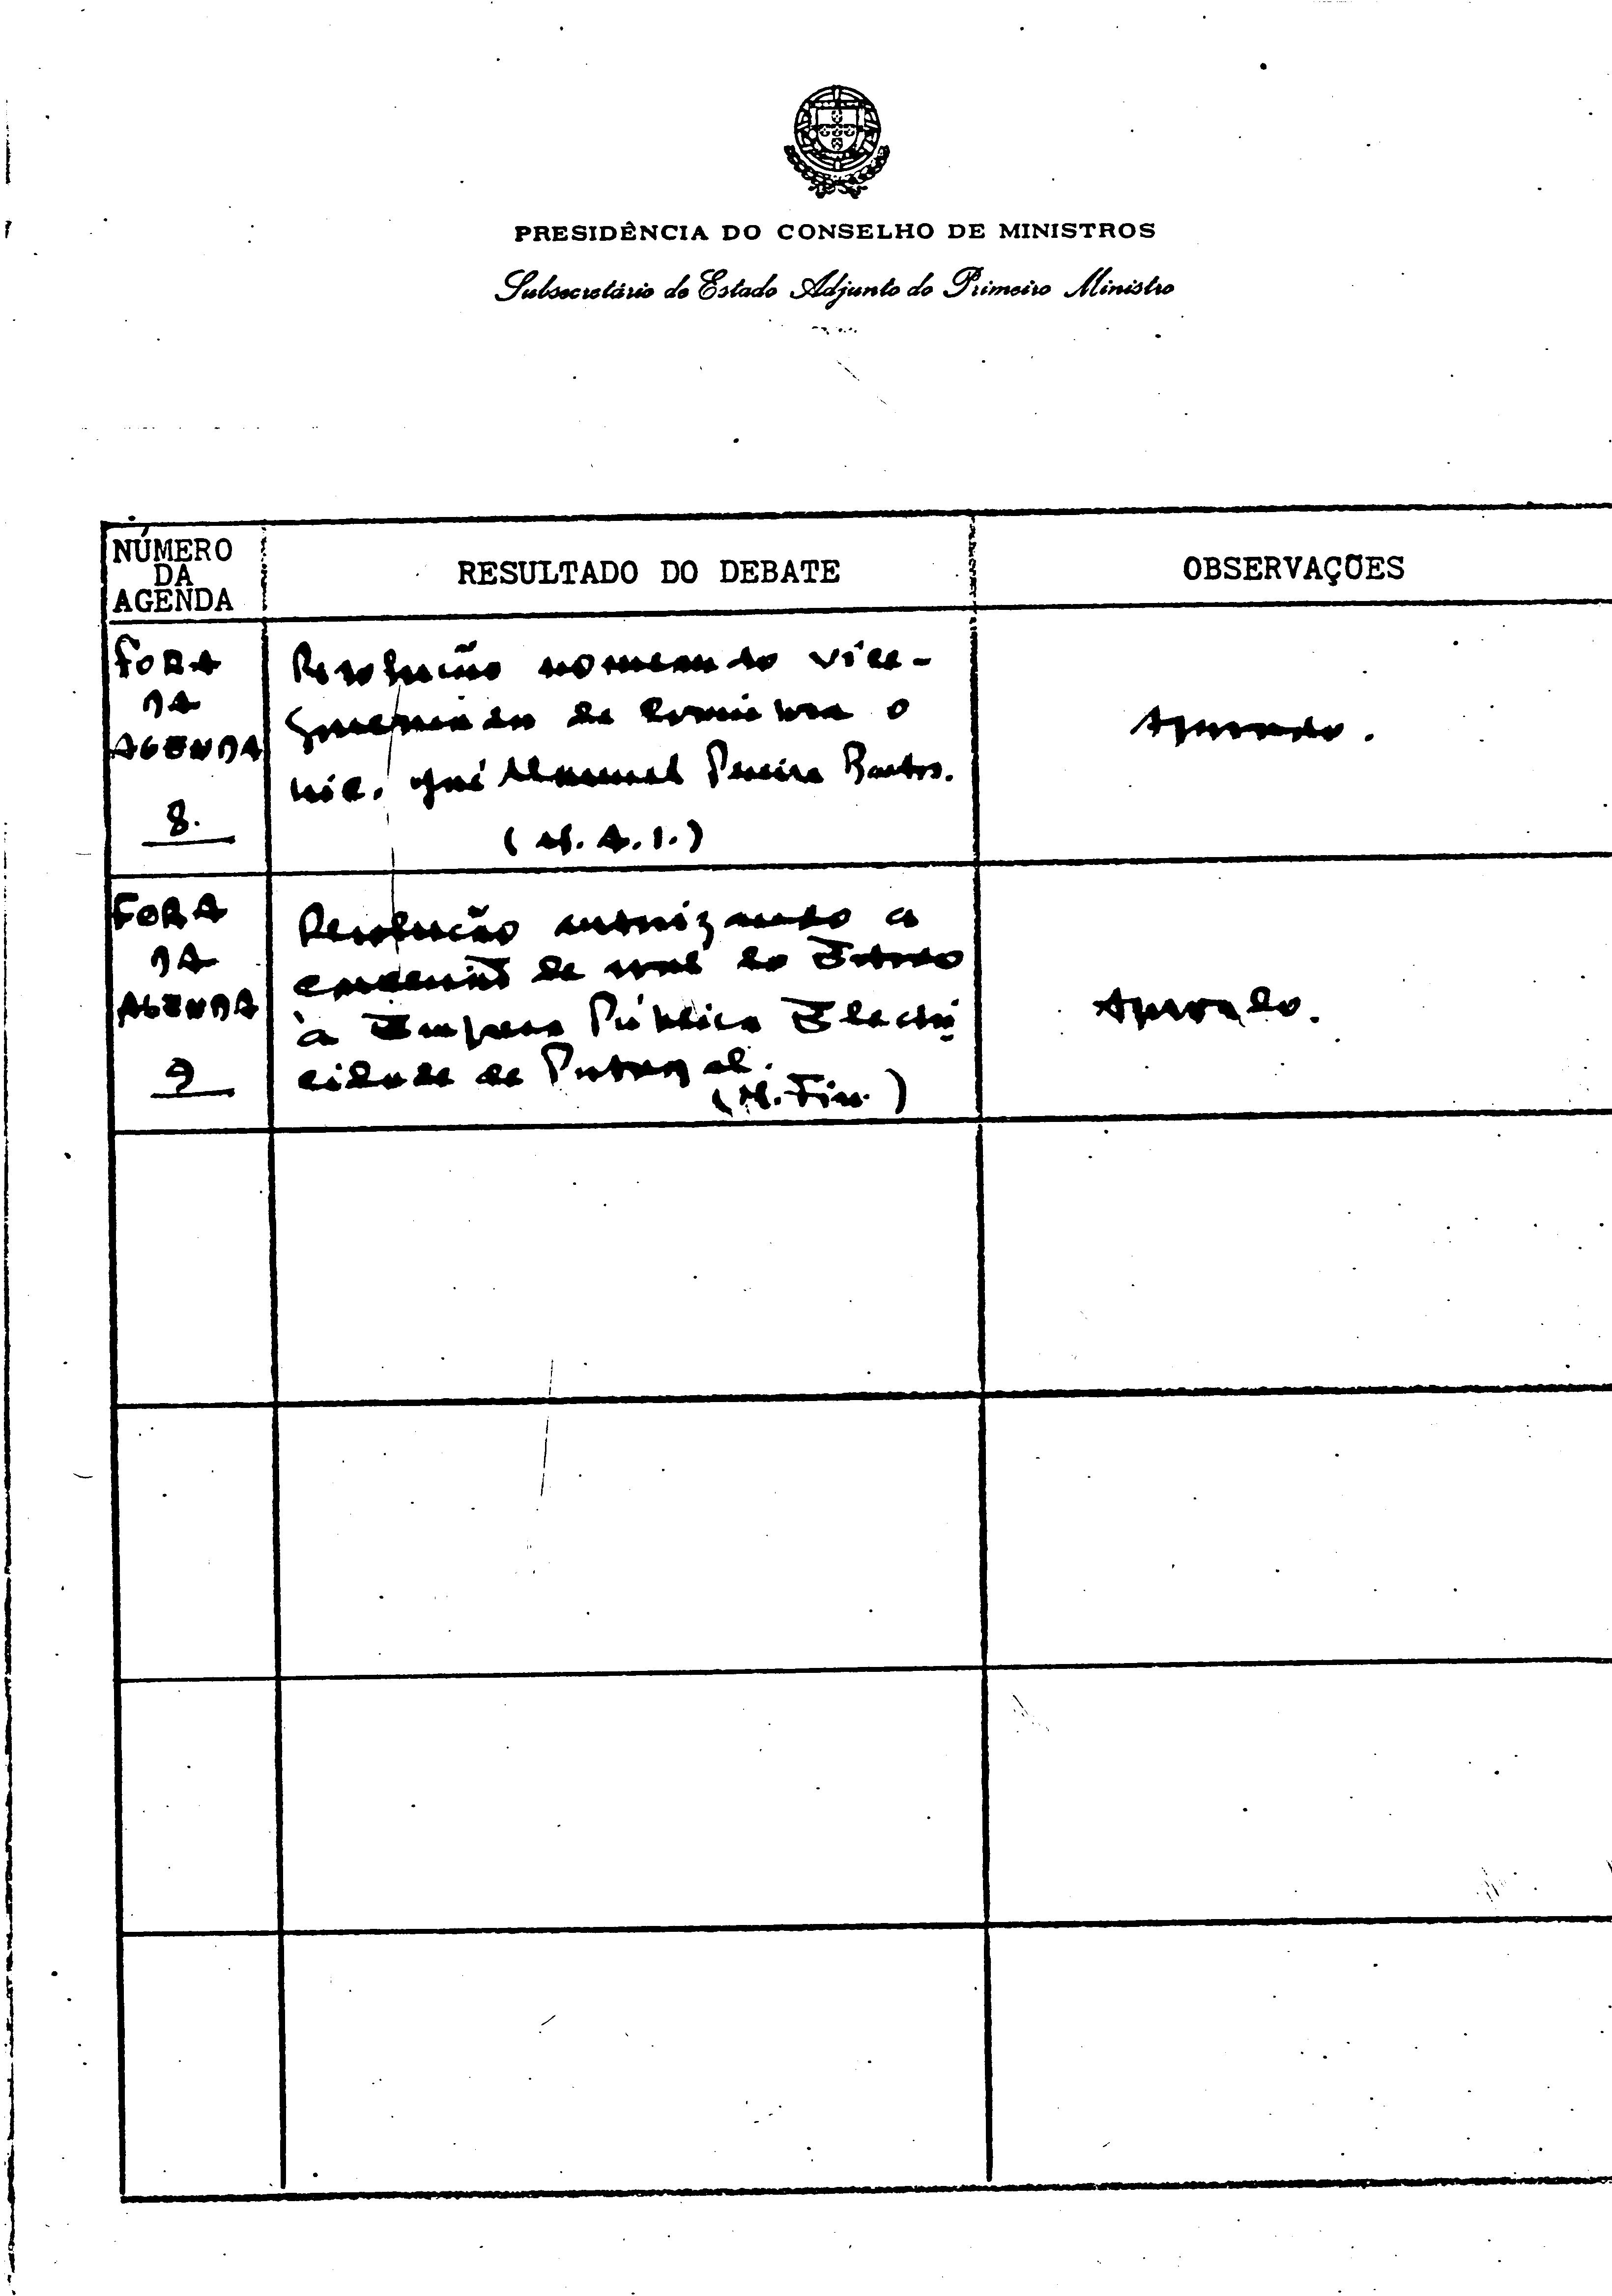 PRESIDÊNCIA DO CONSELHO DE MINISTROS
Subsecretário de Estado Adjunto do Primeiro Ministro
NÚMERO
DA
AGENDA
RESULTADO DO DEBATE
OBSERVAÇÕES
FORA
DA
AGENDA
8.
Resolução nomeando vice-
governador de Coimbra o
José Manuel Pereira Bastos.
(M.A.I.)
Aprovado.
FORA
DA
AGENDA
9
Resolução autorizando a
de aval do Estado
à Empresa Pública Electri
cidade de Portugal.
(M. Fin.)
Aprovado.